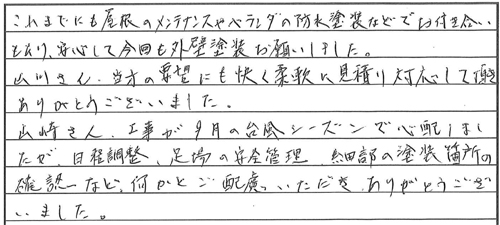 これまでにも屋根のメンテナンスやベランダの防水塗装などでお付き合い
もあり、安心して今回も外壁塗装お願いしました。
山川さん、当方の要望にも快く柔軟に見積り対応して頂き
ありがとうございました。
山崎さん、工事が9月の台風シーズンで心配しまし
たが、日程調整、足場の安全管理、細部の塗装箇所の
確認など、何かとご配慮いただき、ありがとうござ
いました。